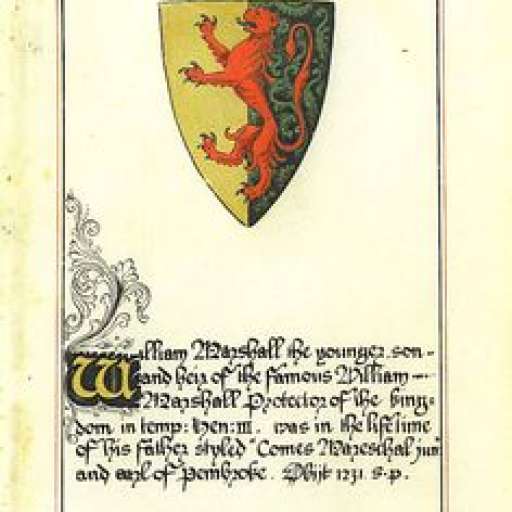 William Marshall the younger. son-
and heir of the famous William -
Marshall Protector of the King-
dom in temp: Hen: III. was in the lifetime
of his father styled "Comes Mareschal jun"
and earl of Pembroke. Obijt 1231. s.p.